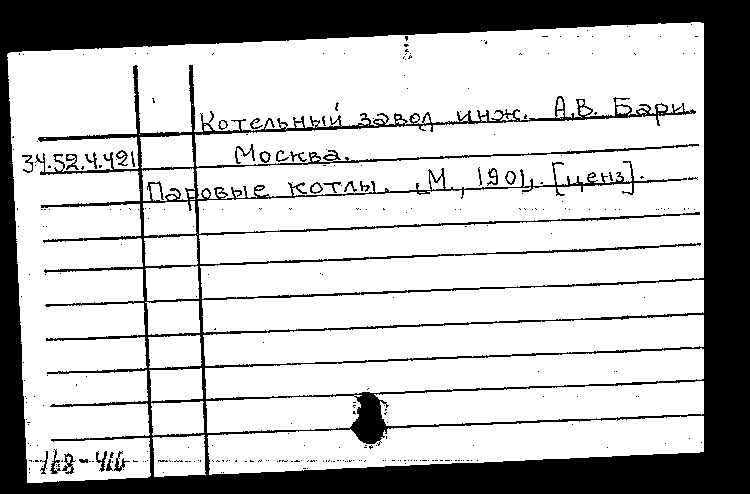 Котельный завод инж. А.В. Бари.
34.52.4.421 Москва.
Паровые котлы. [М., 190], [ценз].
168-416